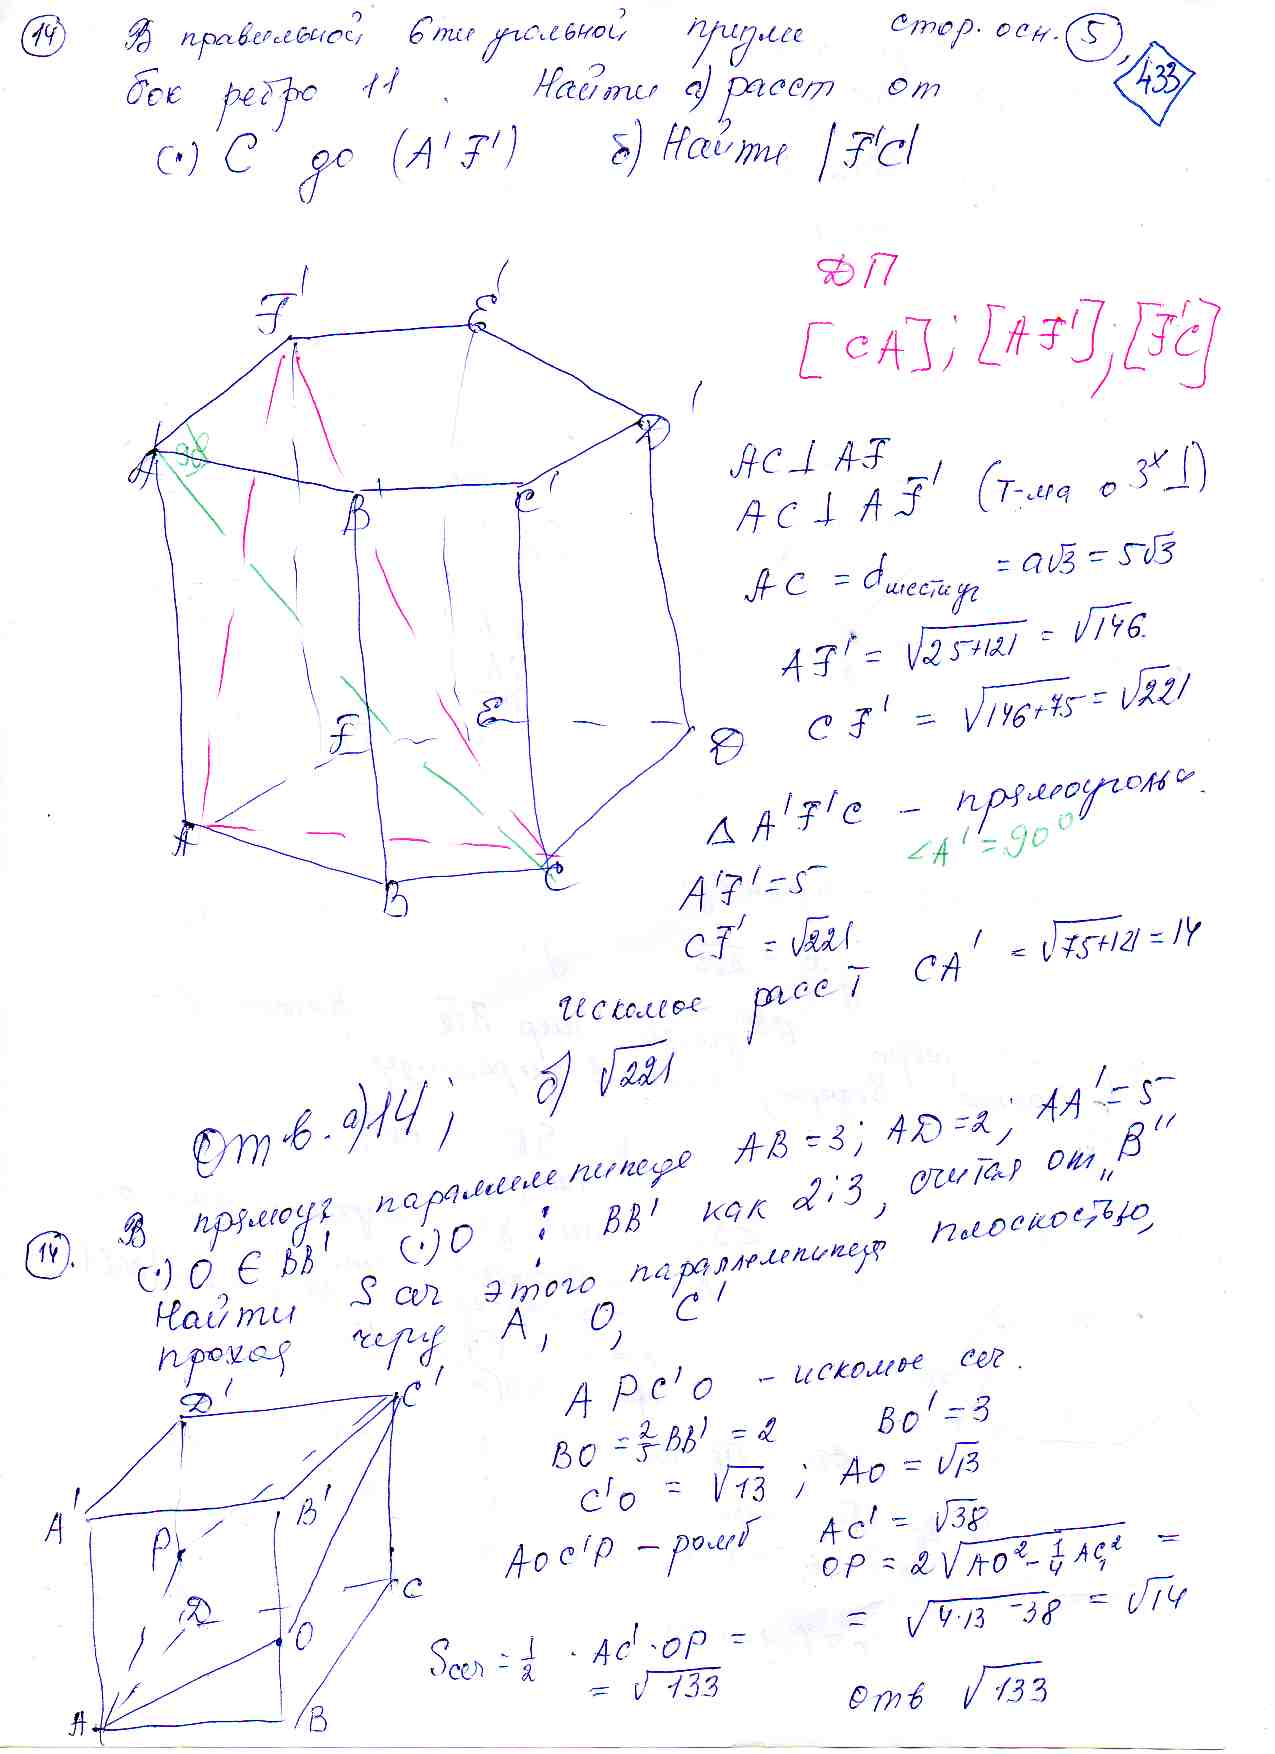 14 В правильной 6ти угольной призме стор. осн. 5,
433
бок ребро 11. Найти а) расст от
(·) C до (A'F') б) Найти |F'C|
ДП
[CA]; [AF']; [F'C]
F' E'
A' 90 B' C' D'
F E D
A B C
AC ⊥ AF
AC ⊥ AF' (Т-ма о 3х ⊥)
AC = d шестиуг = a√3 = 5√3
AF' = √25+121 = √146.
CF' = √146+75 = √221
Δ A'F'C – прямоугольн.
∠A' = 90°
A'F' = 5
CF' = √221
Искомое расст CA' = √75+121 = 14
Отв. а) 14; б) √221
14. В прямоуг параллелепипеде AB = 3; AD = 2; AA' = 5
(·) O ∈ BB' (·) O ⋮ BB' как 2:3, считая от „B"
Найти S сеч этого параллелепипеда плоскостью,
проход через A, O, C'
D' C'
A' B'
P
D C
O
A B
APC'O – искомое сеч.
BO = 2/5 BB' = 2 BO' = 3
C'O = √13; AO = √13
AOC'P – ромб AC' = √38
OP = 2√AO² – 1/4 AC₁² =
= √4·13 – 38 = √14
Sсеч = 1/2 · AC' · OP =
= √133
Отв √133